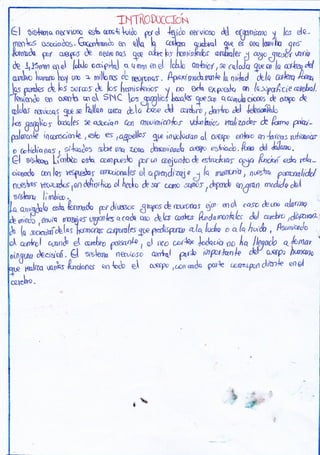 INTRODUCCIÓN
El sistema nervioso esta constituido por el tejido nervioso del organismo y los ele-
mentos asociados. Encontrando en ella la corteza cerebral que es una lamina gris
formada por cuerpos de neuronas que cubre los hemisferios cerebrales y cuyo grosor varia
de 1,25mm en el lobulo occipital a 4 mm en el lobulo anterior, se calcula que en la corteza del
cerebro humano hay unos millones de neuronas. Aproximadamente la mitad de la corteza forma
las paredes de los surcos de los hemisferios y no esta expuesta en la superficie cerebral.
Teniendo en cuenta en el SNC los ganglios basales que son acumulaciones de cuerpos de
celulas nerviosas que se hallan cerca de la base del cerebro, dentro del telencéfalo
los ganglios basales se asocian con movimientos voluntarios realizados de forma princi-
palmente inconsciente, esto es, aquellos que involucran al cuerpo entero en tareas rutinarias
o cotidianas, situados sobre una zona denominada cuerpo estriado fuera del tálamo.
El sistema limbico esta compuesto por un conjunto de estructuras cuya función esta rela-
cionada con las respuestas emocionales el aprendizaje y la memoria, nuestra personalidad
nuestros recuerdos en definitiva el hecho de ser como somos, depende en gran medida del
sistema limbico.
La amigdala esta formada por diversos grupos de neuronas en el caso de una alarma
de miedo, envia mensajes urgentes a cada uno de los centros fundamentales del cerebro, disparando
la secreción de las hormonas corporales que predisponen a la lucha o a la huida, Asumiendo
el control cuando el cerebro pensante, el neo cortex todavia no ha llegado a tomar
ninguna decisión. El sistema nervioso central parte importante del cuerpo humano
que realiza varias funciones en todo el cuerpo, con cada parte correspondiente en el
cerebro.